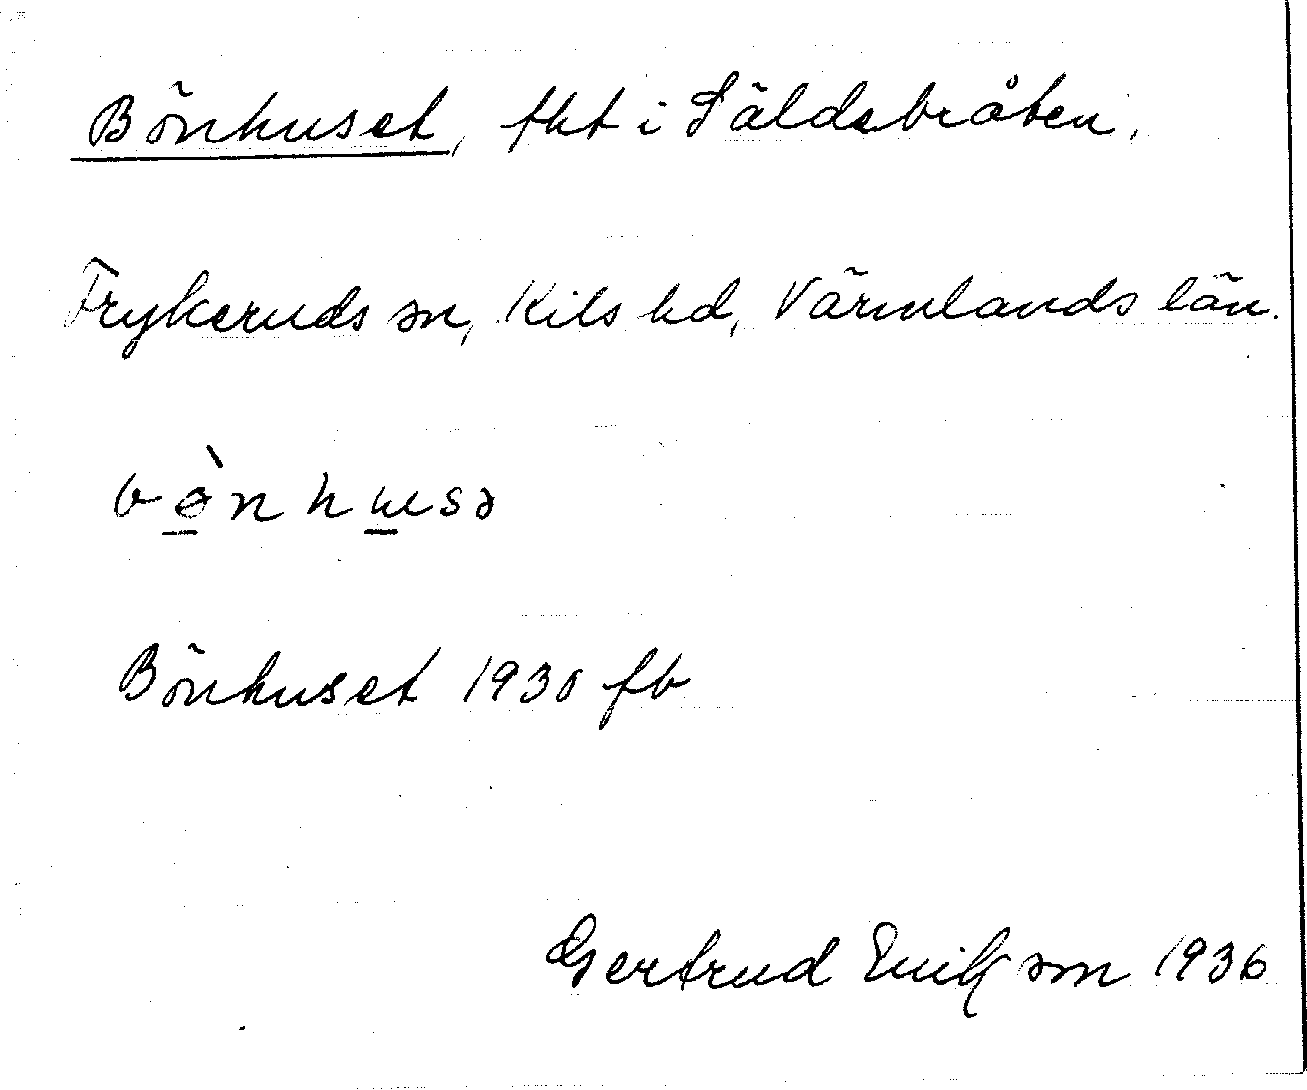 Bönhuset, fht i Säldebråten,
Frykeruds sn, Kils hd, Värmlands län.
bə̀nhusə
Bönhuset 1930 fb
Gertrud Erikson 1936